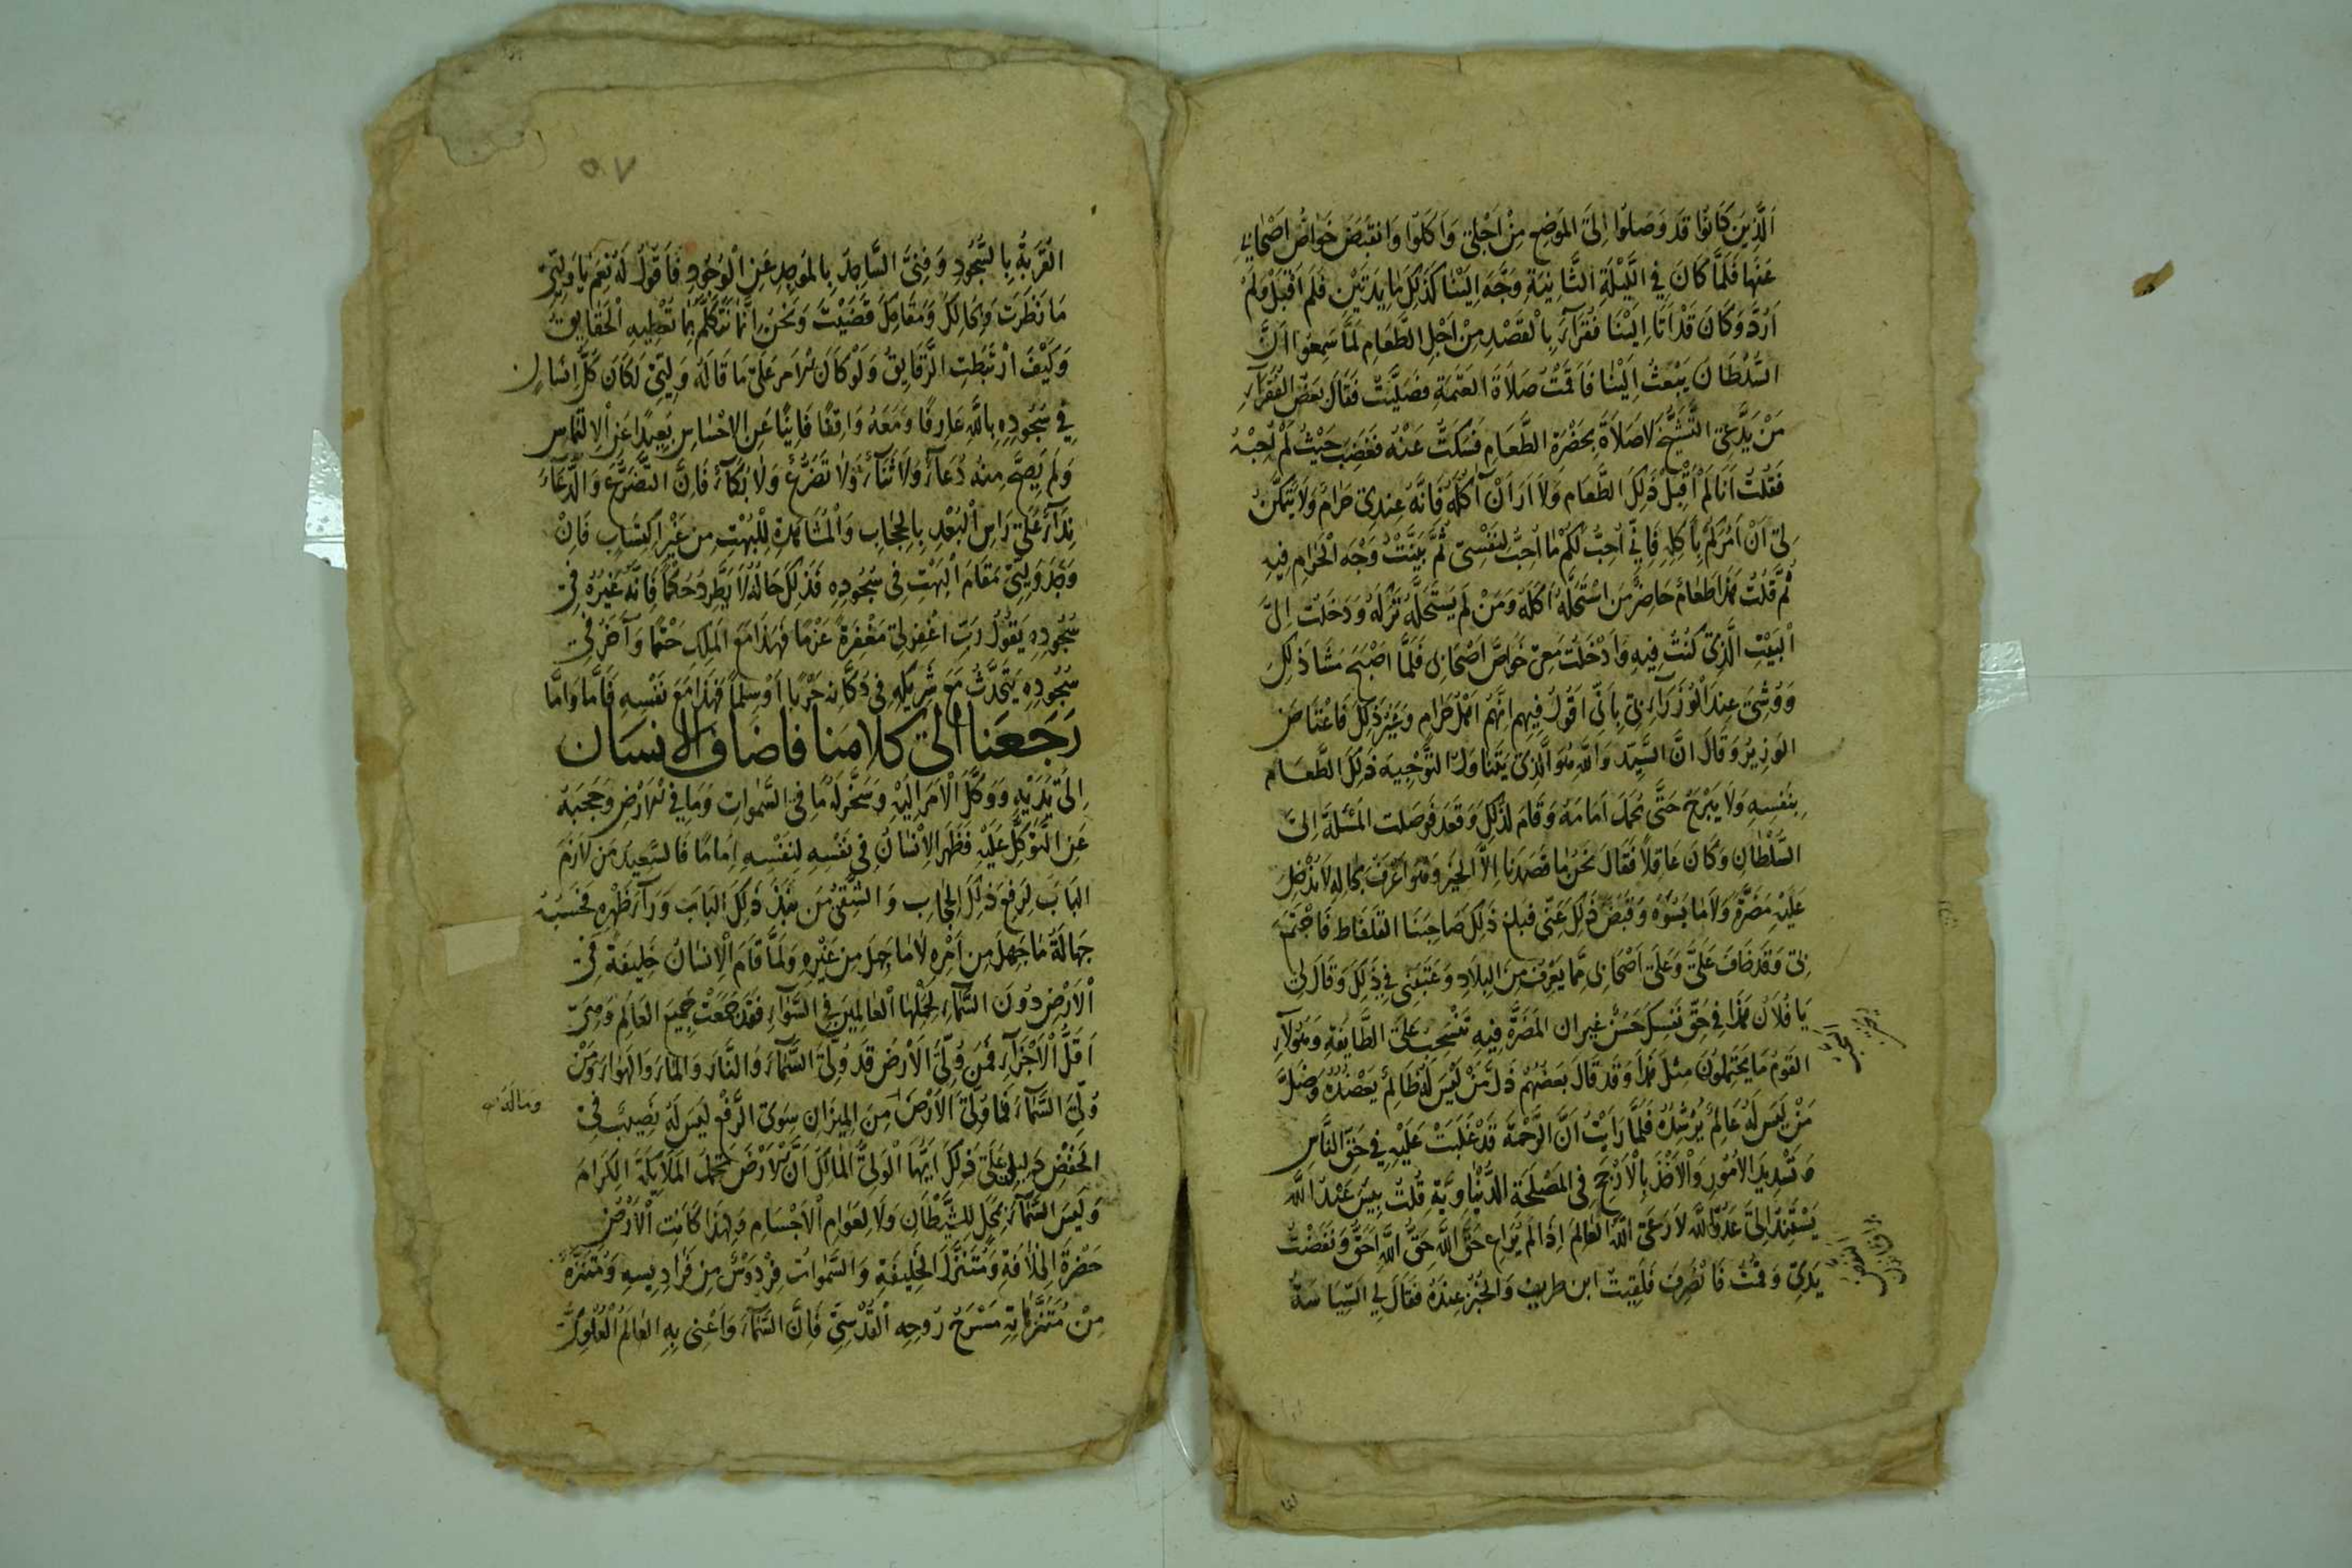 الَّذِينَ كَانُوا قَد وَصَلوُا اِلىَ المَوَضِعِ مِنْ اَجْلىِ وَاَكَلوُا وَانقَبَضَ خَوَاصُّ اَصْحَابىِ
عَنهَا فَلَمَّا كَانَ فِي اللَّيْلَةِ الثَّانِيَةِ وَجَّهَ اِلَيْنَا كَذَلِكَ مَايِدَتَيْنِ فَلَم اَقْبَلْ وَلَمْ
اَرُدَّ وَكَانَ قَدْ اَتَا اِلَيْنَا فُقَرَآءَ بِالْقَصْدِ مِنْ اَجْلِ الطَّعَامِ لَمَّا سَمِعوُا اَنَّ
السُّلْطَانَ يَبْعَثُ اِلَيْنَا فَاَقَمْتُ صَلَاةَ العَتَمَةِ فَصَلَّيْتُ فَقَالَ بَعَضُ الفُقَرَآءِ
مَنْ يَدَّعِى التَّشَيُّخَ لَا صَلَاةَ بِحَضْرَةِ الطَّعَامِ فَسَكَتُّ عَنْهُ فَغَضِبَ حَيْثُ لَمْ اُجِبْهُ
فَقُلْتُ اَنَا لَمْ اَقْبَلْ ذَلِكَ الطَّعَامَ وَلَا اَرَ اَنْ آكُلَهُ فَاِنَّهُ عِندِى حَرَامٌ وَلَا يَتَمَكَّنُ
لىِ اَنْ آمُرَكُمْ بِأَكلِهِ فَاِنىِّ اُحِبُّ لَكُمْ مَا اُحِبُّ لِنَفْسِى ثُمَّ بَيَّنْتُ وَجْهَ الْحَرَامِ فِيهِ
ثُمَّ قُلْتُ هَذَا طَعَامٌ حَاضِرٌ مَنِ اسْتَحَلَّهُ اَكَلَهُ وَمَنْ لَم يَسْتَحَلَّهُ تَرَكَهُ وَدَخَلتُ اِلىَ
الْبَيْتِ الَّذِى كُنْتُ فِيهِ وَاَدْخَلْتُ مَعِى خَوَاصَّ اَصْحَابىِ فَلَمَّا اَصْبَحَ مَشَا ذَلِكَ
وَوُشِىَ عِندَ الْوُزَرَآءِ بىِ بِاَنىِّ اَقُولُ فِيهِم اِنَّهُم اَهْلُ حَرَامٍ وَغَيْرَ ذَلِكَ فَاغْتَاضَ
الوَزِيرُ وَقَالَ اِنَّ السَّيِّدَ وَاللَّهِ هُوَ الَّذِى يَتَنَاوَلُ التَّوْجِيهَ ذَلِكَ الطَّعَامِ
بِنَفسِهِ وَلَا يَبْرَحُ حَتَّى يُحْمَلَ اَمَامَهُ وَقَامَ لذَلِكَ وَقَعَدَ فَوَصَلَت المَسْئَلَة اِلىَ
السُّلْطَانِ وَكَانَ عَاقِلاً فَقَالَ نَحَنُ مَا قَصَدْنَا اِلاَّ الخَيْرَ وَهُوَ اَعْرَفُ بِحَالِهِ لَا نُدْخِلُ
عَلَيْهِ مَضَرَّةً وَلَا مَا يَسُوءُهُ وَقَبَضَ ذَلِكَ عَنىِّ فَبَلغَ ذَلِكَ صَاحِبَنَا القَلفَاط فَاجْتَمَعَ
بىِ وَقَد خَافَ عَلىَّ وَعَلىَ اَصْحَابىِ مِمَّا يَعْرِفُ مِنَ البِلَادِ وَعَتَبَنِى فِي ذَلِكَ وَقَالَ لىِ
يَا فُلَانُ هَذَا فِي حَقِّ نَفْسِكَ حَسَنٌ غير ان المَضَرَّةَ فِيهِ تَنْسَحِبُ عَلىَ الطَّايِفَةِ وَهَؤُلَآءِ
القَوْمُ مَا يَحْتَمِلُونَ مِثْلَ هَذَا وَقَدْ قَالَ بَعَضُهُمْ ذَلَّ مَنْ لَيْسَ لَهُ ظَالِمٌ يَعْضُدُهُ وَضَلَّ
مَنْ لَيسَ لَهُ عَالِمٌ يُرْشِدُهُ فَلَمَّا رَاَيْتُ اَنَّ الرَّحْمَةَ قَدْ غَلَبَتْ عَلَيْهِ فِي حَقِّ النَّاسِ
وَتَسْدِيدَ الاُمُورِ وَالْاَخْذَ بِالْاَرْجَحِ فِى المَصْلَحَةِ الدُّنْيَاوِيَّةِ قُلْتُ بِيسَ عَبْدُ اللَّهِ
يَسْتَنِدُ اِلىَ عَدُوِّ اللَّهِ لَا رَعَى اللَّهُ العَالِمَ اِذَا لَم يُرَاعِ حَقَّ اللَّهِ حَقُّ اللَّهِ اَحَقُّ وَنَفَضْتُ
يَدَىَّ وَقُمْتُ فَانْصَرِفَ فَلَقِيتُ ابن طريف وَالخَبَرُ عِنْدَهُ فَقَالَ لِي السِّيَاسَةُ
٥٧
القُرَبَةُ بِالسُّجُودِ وَفِنىَ السَّاجِدُ بِالمَوَجِدِ عَنِ الْوُجُودِ فَاَقوُلُ لَهُ نِعْمَ يَا وَلِيىِّ
مَا نَظَرْتَ وَبِحَالِكَ وَمَقَامِكَ قَضَيْتَ وَنَحَنُ اِنَّمَا نَتَكَلَّمُ بِمَا تُعْطِيهِ الْحَقَايِقُ
وَكَيْفَ ارْتَبَطَتِ الرَّقَايِقُ وَلَوْ كَانَ الاَمر عَلىَ مَا قَالَهُ وَلِيىِّ لَكَانَ كُلُّ اِنْسَانٍ
فِي سُجُودِهِ بِاللَّهِ عَارِفًا وَمَعَهُ وَاقِفًا فَانِيًا عَنِ الاحْسَاسِ بَعِيدًا عَنِ الِالْتِمَاسِ
وَلَم يَصِحَّ مِنهُ دُعَآءٌ وَلَا ثَنَآءٌ وَلَا تَضَرُّعٌ وَلَا بُكَآءٌ فَاِنَّ التَّضَرُّعَ وَالدُّعَآءَ
نِدَآءٌ عَلىَ رَاسِ الْبُعْدِ بِالْحِجَابِ وَالْمُشَاهَدَةِ لِلْبُهْتِ مِنْ غَيْرِ اكتِسَابٍ فَاِنْ
وَجَدَ وَلِيىِّ مَقَامَ الْبَهْتِ فِى سُجُودِهِ فَذَلِكَ حَالَهُ لَا يَطَّرِدُ حُكْمًا فَاِنَّهُ غَيْرُهُ فِى
سُجُودِهِ يَقُوُلُ رَبِّ اغْفِرْ لىِ مَغْفِرَةً عَزْمًا فَهَذَا مَعَ المَلِكِ حَتْمًا وَآخَرُ فىِ
سُجُودِهِ يَتَحَدَّثُ مَعَ شَرِيكِهِ فِى دُكَّانِهِ حَرْبًا اَوْ سِلْمًا فَهَذَا مَعَ نَفْسِهِ فَاَمَّا وَاَمَّا
رَجَعَنَا الىَ كلَامنَا فاضَافَ الانسَان
اِلىَ يَدَيْهِ وَوَكَّلَ الْاَمَرَ اِلَيْهِ وَسَخَّرَ لَهُ مَا فِى السَّمٰوَاتِ وَمَا فِى الاَرْضِ وَحَجَبَهُ
عَنِ التَّوَكُّلِ عَلَيْهِ فَظَهَرَ الْاِنْسَانُ فِى نَفْسِهِ لِنَفْسِهِ اِمَامًا فَالسَّعِيدُ مَن لَازَمَ
البَابَ لِرَفعِ ذَلِكَ الحِجَابِ وَالشَّقىُّ مَن نَبَذَ ذَلِكَ البَابَ وَرَآءَ ظَهْرِهِ فَحَسْبُهُ
جَهَالَةُ مَا جَهِلَ مِن اَمْرِهِ لَا مَا جَهِلَ مِن غَيْرِهِ وَلَمَّا قَامَ الْاِنسَانُ خَلِيفَةً فىِ
الْاَرْضِ دُونَ السَّمَآءِ لِحَمْلِهَا الْعَالَمِينَ فِى السَّوَآءِ فَقَد جَمَعَتْ جَمِيعَ العَالَمِ وَهِىَ
اَقَلُّ الْاَجْزَآءِ فَمَن وُلّىَ الاَرْضَ قَد وُلّىَ السَّمَآءَ وَالنَّارَ وَالمَآءَ وَالهَوَاءَ وَمَنْ
وُلّىَ السَّمَآءَ فَمَا وُلّىَ الاَرْضَ مِنَ المِيزَانِ سِوَى الرَّفْعِ لَيسَ لَهُ نَصِيبٌ فىِ
الخَفْضِ دَلِيلٌ عَلىَ ذَلِكَ اَيُّهَا الْوَلِىُّ المَالِكُ اَنَّ الاَرْضَ تَحمِلُ المَلَايِكَةَ الكِرَامَ
وَلَيسَ السَّمَآءُ بِمَحَلٍّ لِلشَّيْطَانِ وَلَا لِعَوَامِ الْاَجْسَامِ وَلِهَذَا كَانَتِ الْاَرْضُ
حَضْرَةَ الخِلَافَةِ وَمُتَنَزَّلَ الخَلِيفَةِ وَالسَّمٰوَاتُ فِرْدَوْسٌ مِن فَرَادِيسِهِ وَمُتَنَزَّهٌ
مِنْ مُتَنَزَّهَاتِهِ مَسْرَحُ رُوحِهِ الْقُدْسِىِّ فَاِنَّ السَّمَآءَ وَاَعْنِى بِهِ العَالَمَ الْعُلْوِىَّ